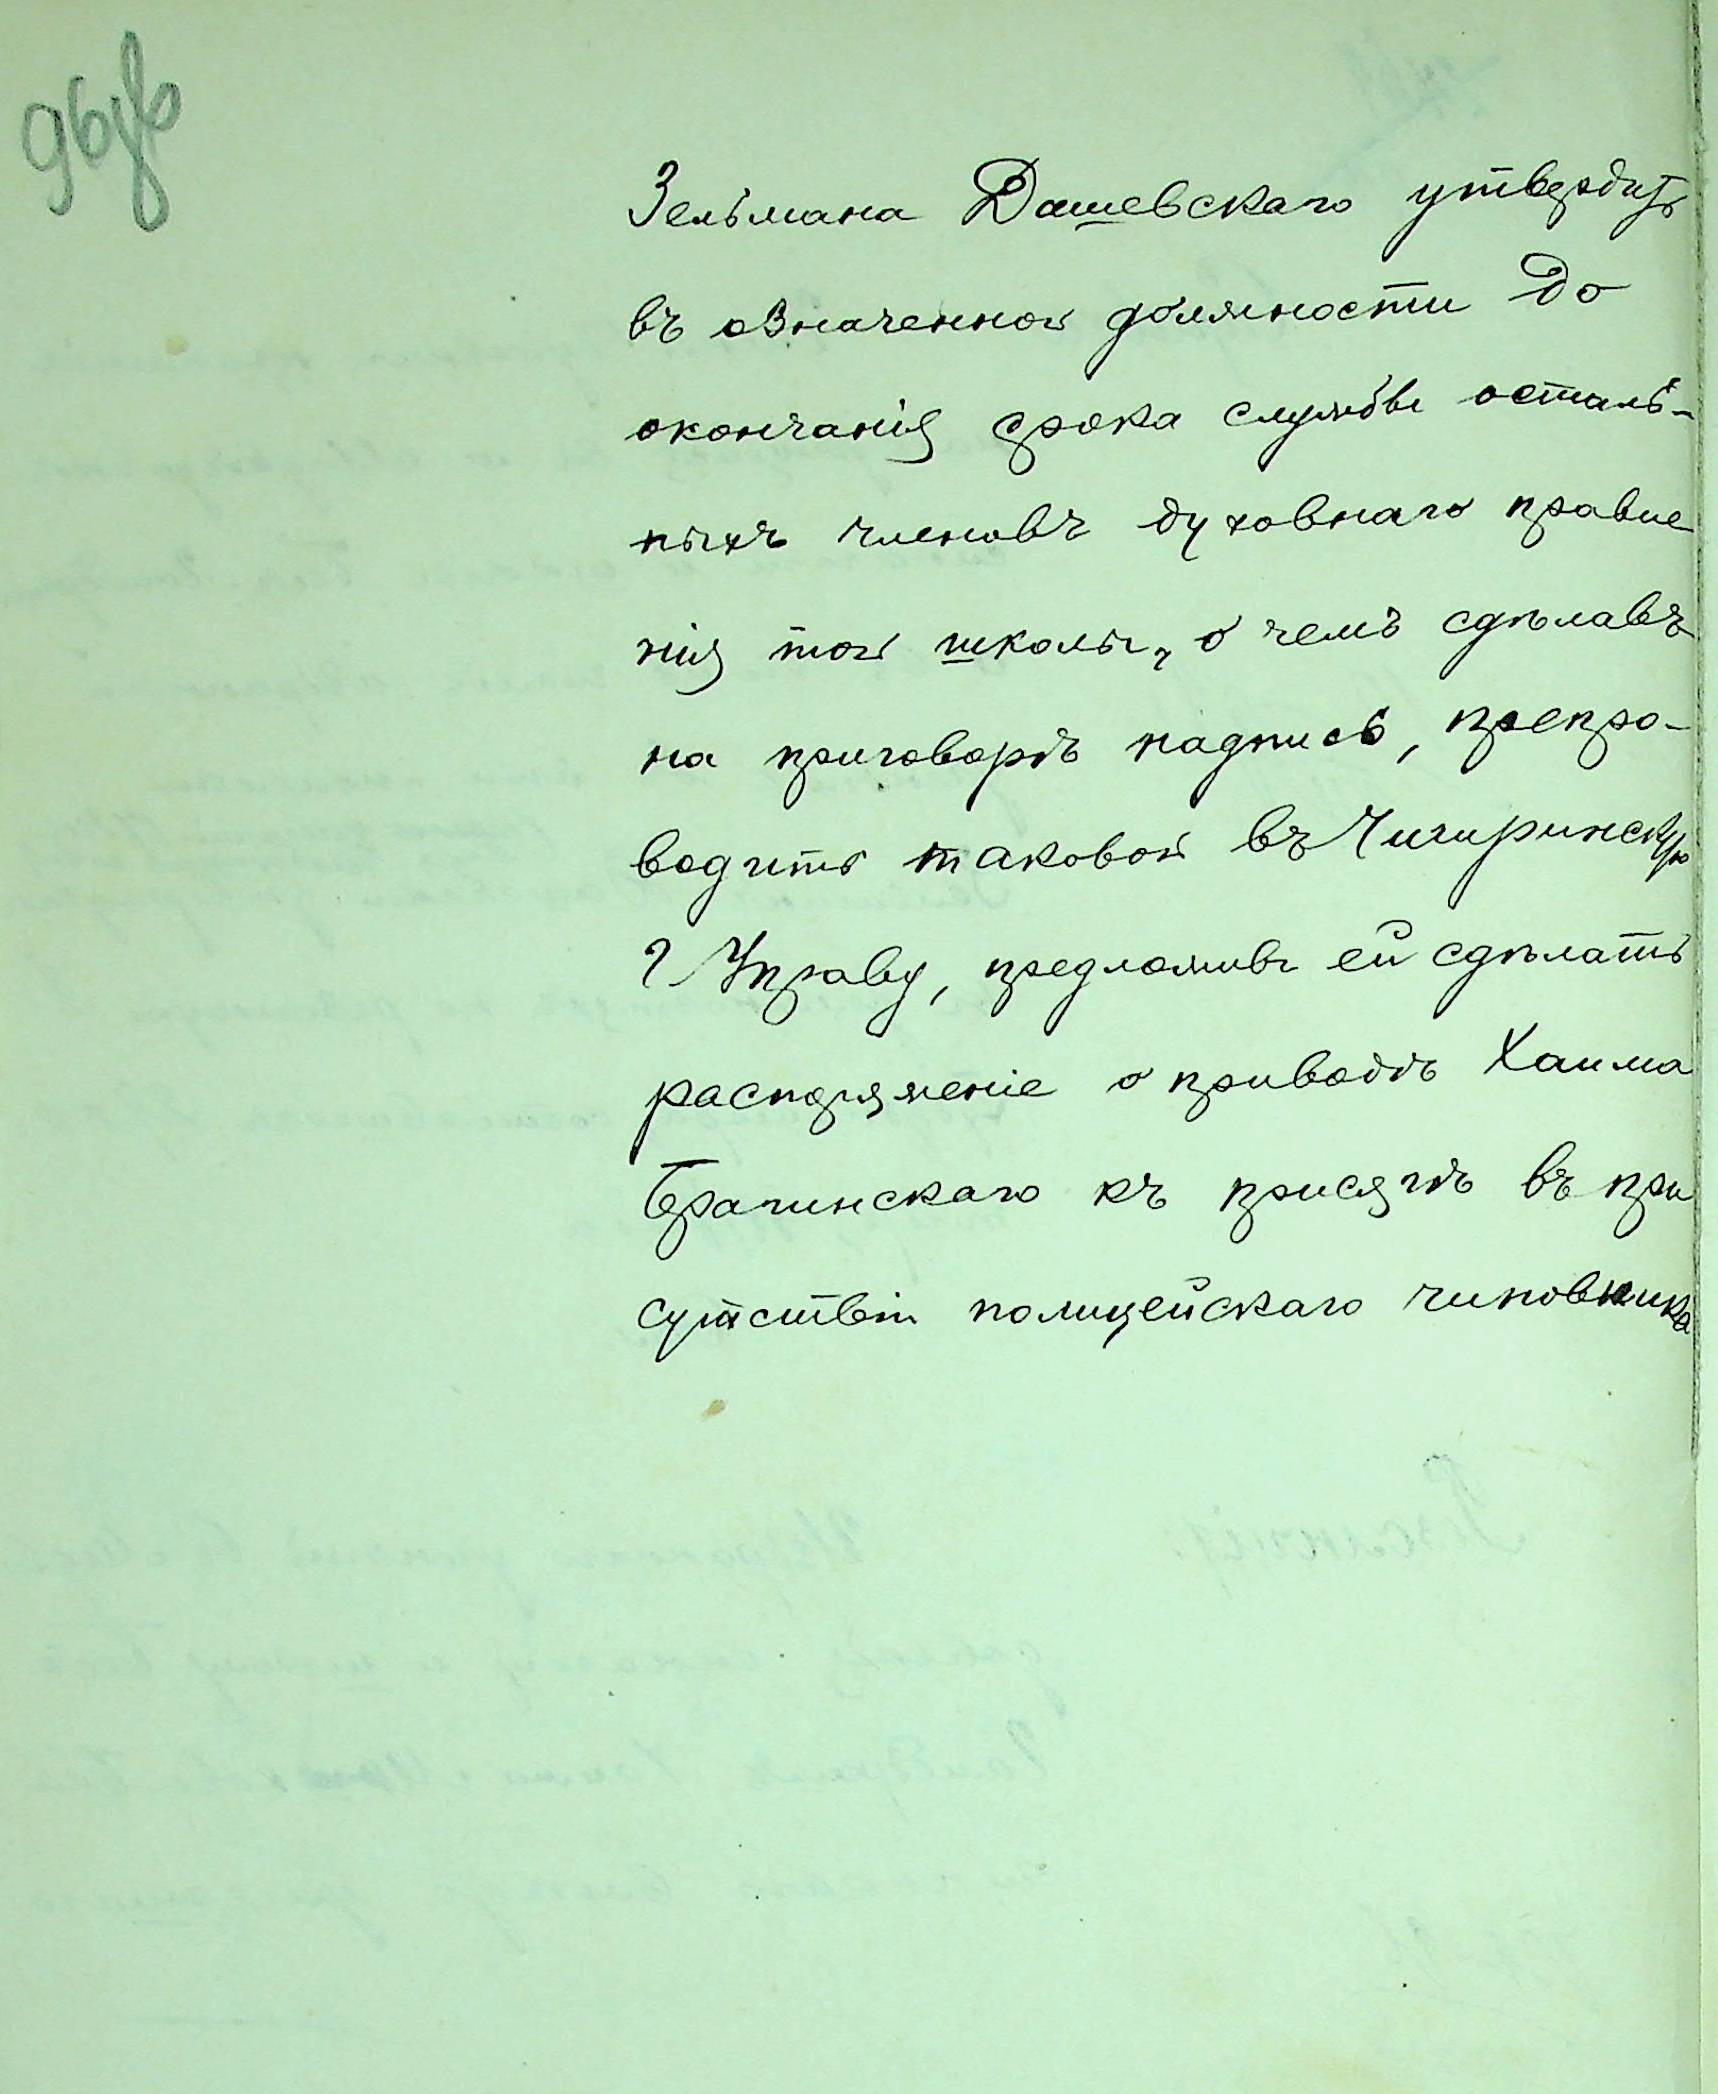 96об
Зельмана Дашевскаго утвердить
въ означенной должности до
окончанія срока службы осталь-
ныхъ членовъ духовнаго правле
нія той школы, о чемъ сдѣлавъ
на приговорѣ надпись, препро-
водить таковой въ Чигиринскую
Г Управу, предложивъ ей сдѣлать
распоряженіе о приводѣ Хаима
Брагинскаго къ присягѣ въ при
сутствіи полицейскаго чиновника